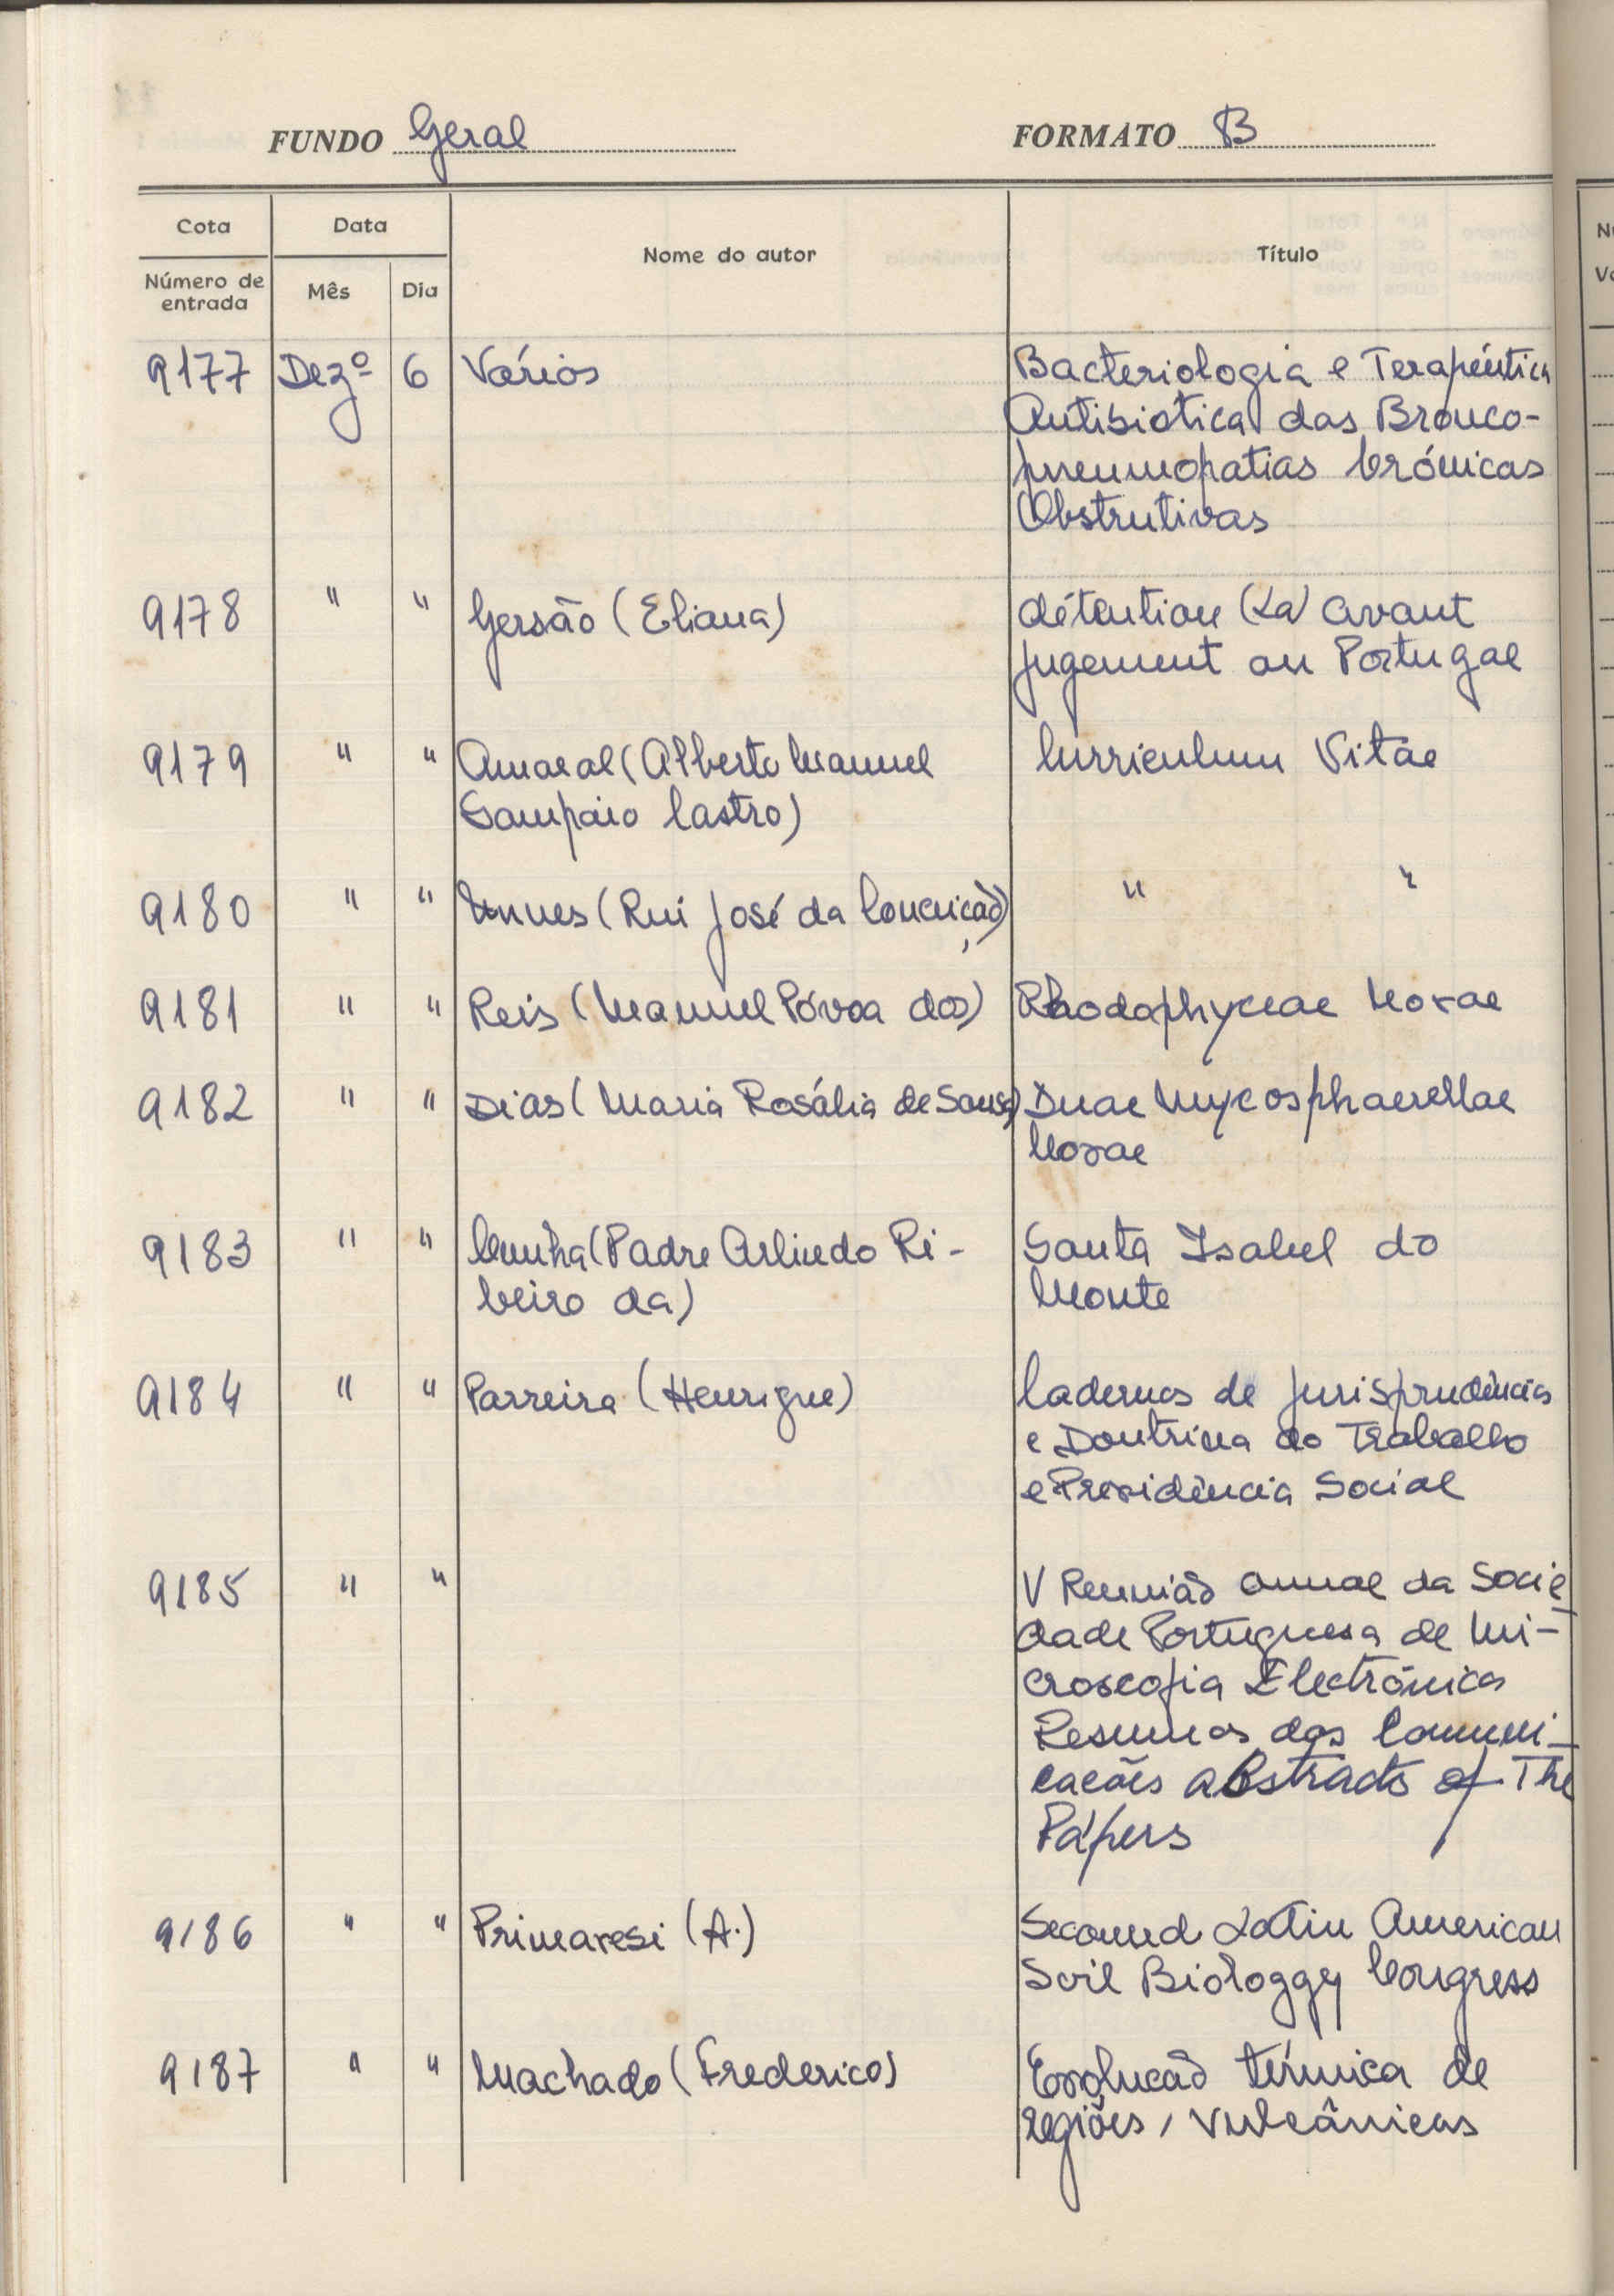 FUNDO Geral FORMATO B
Cota Data Nome do autor Título
Número de entrada Mês Dia
9177 Dezº 6 Vários Bacteriologia e Terapêutica
Antibiotica das Bronco-
pneumopatias Crónicas
Obstrutivas
9178 " " Gersão (Eliana) détention (La) avant
jugement au Portugal
9179 " " Amaral (Alberto Manuel Curriculum Vitae
Sampaio Castro)
9180 " " Nunes (Rui José da Conceição) " "
9181 " " Reis (Manuel Póvoa dos) Rhodophyceae Novae
9182 " " Dias (Maria Rosália de Sousa) Duae Mycosphaerellae
Novae
9183 " " Cunha (Padre Arlindo Ri- Santa Isabel do
beiro da) Monte
9184 " " Parreira (Henrique) Cadernos de Jurisprudência
e Doutrina do Trabalho
e Previdência Social
9185 " " V Reunião anual da Socie
dade Portuguesa de Mi-
croscopia Electrónica
Resumos das Comuni-
cações abstracts of The
Papers
9186 " " Primavesi (A.) Second Latin American
Soil Biologgy Congress
9187 " " Machado (Frederico) Evolução térmica de
regiões, vulcânicas